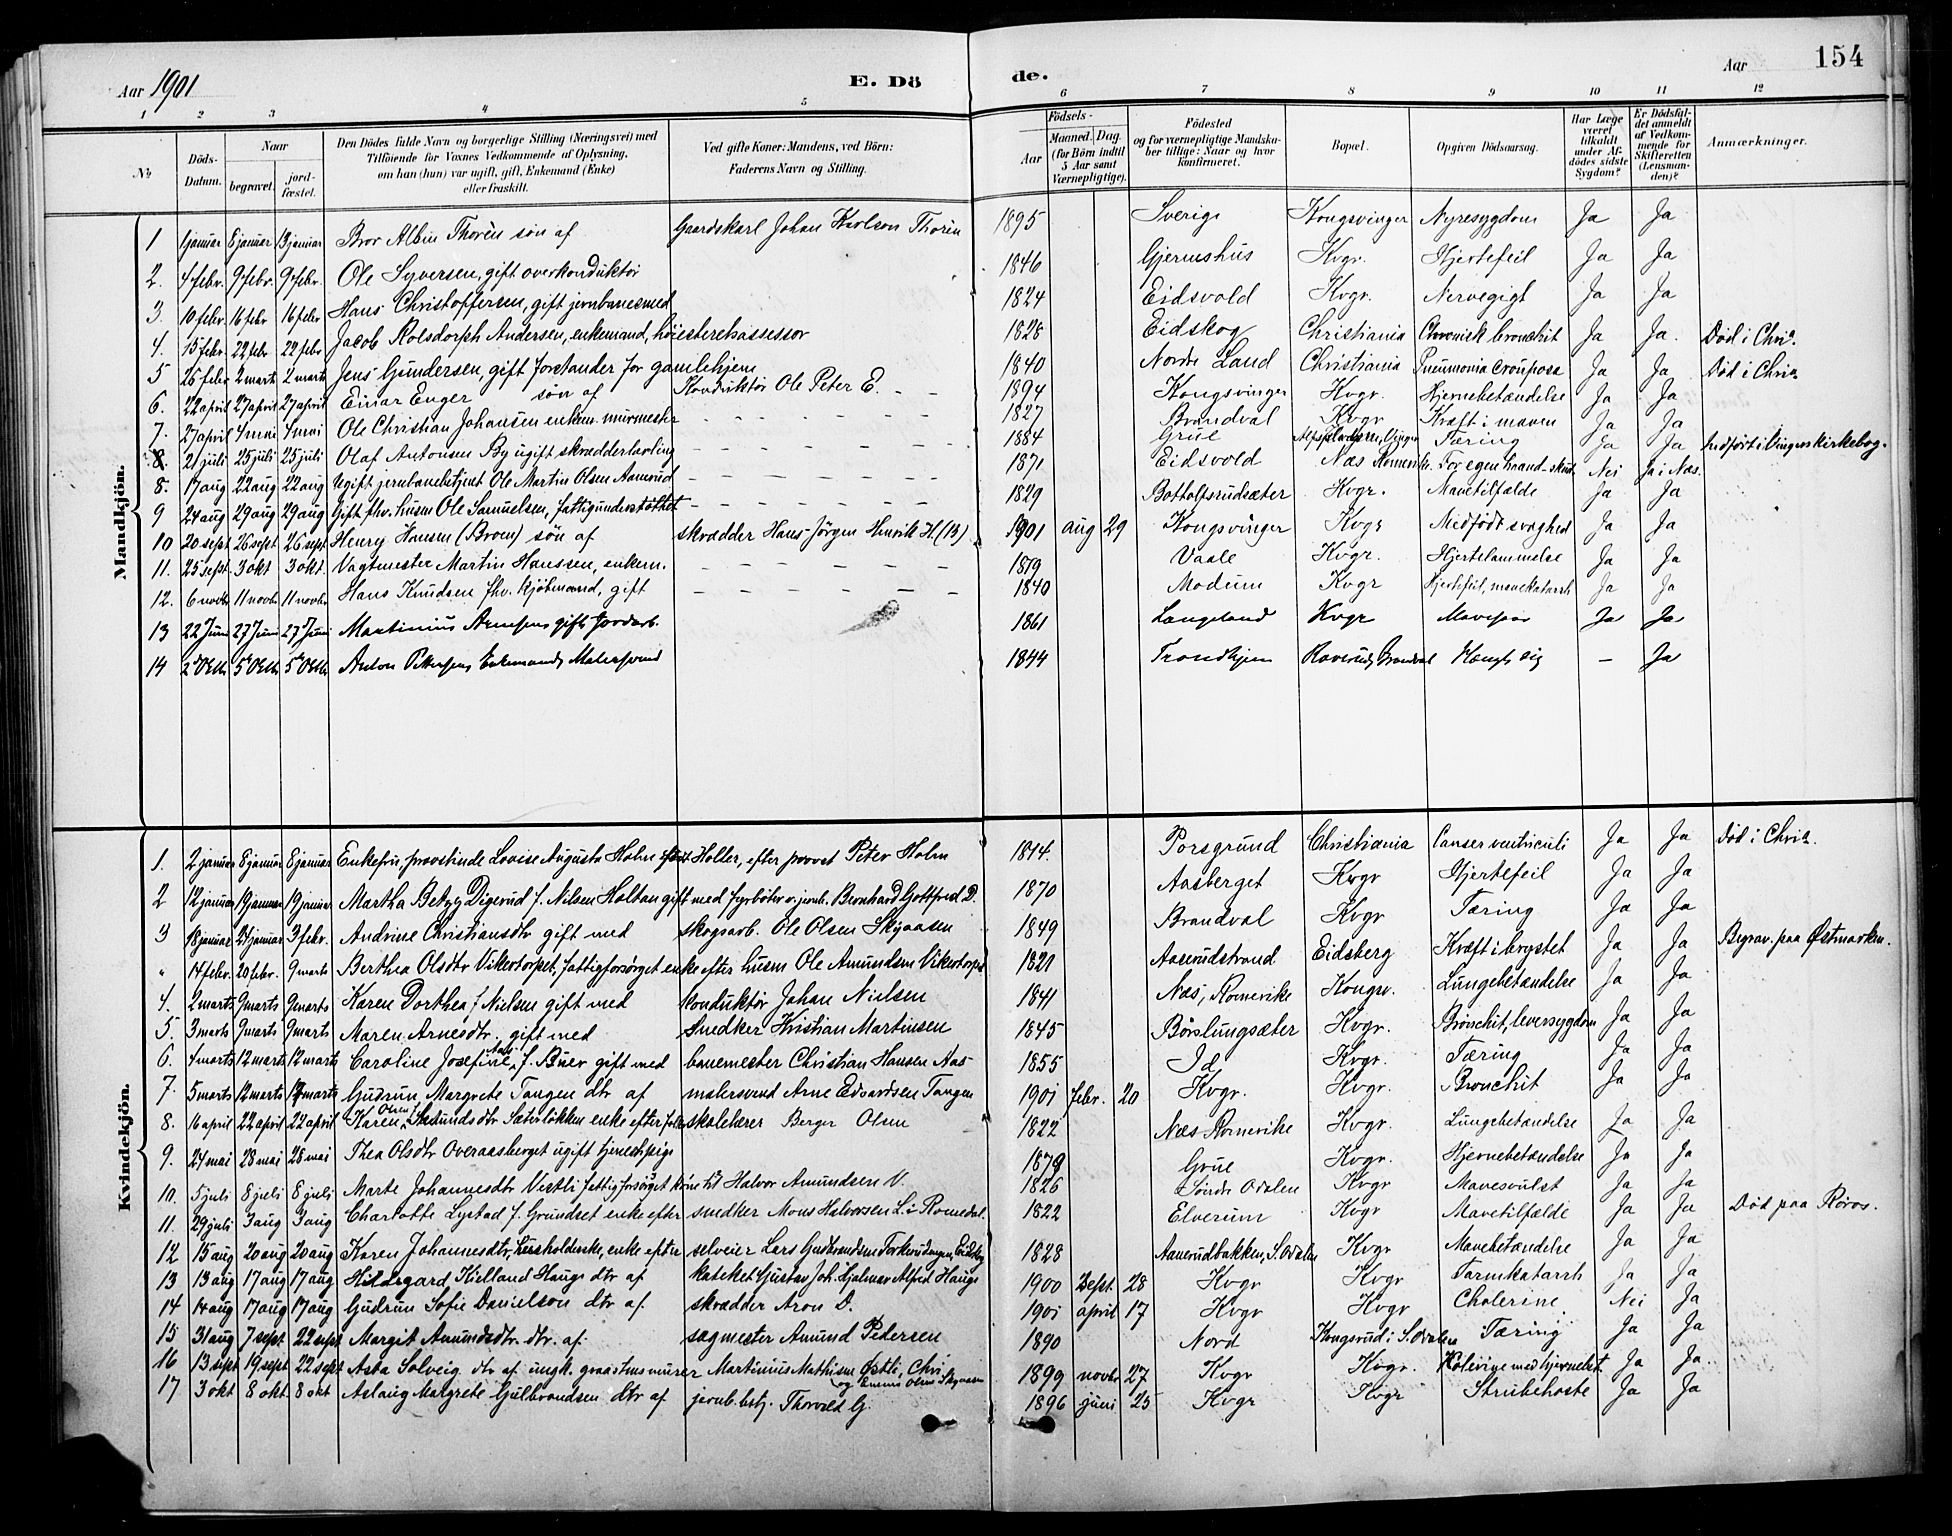 Aar 1901 E. Döde. Aar 154
1 2 3 4 5 6 7 8 9 10 11 12
№ Döds-Datum. Naar begravet. jord-fæstet. Den Dödes fulde Navn og borgerlige Stilling (Næringsvei) med Tilföiende for Voxnes Vedkommende af Oplysning, om han (hun) var ugift, gift, Enkemand (Enke) eller fraskilt. Ved gifte Koner: Mandens, ved Börn: Faderens Navn og Stilling. Födsels- Aar Maaned. Dag. (for Börn indtil 5 Aar samt Værnepligtige). Födested og for værnepligtige Mandskaber tillige: Naar og hvor konfirmeret. Bopæl. Opgiven Dödsaarsag. Har Læge været tilkaldt under Afdödes sidste Sygdom? Er Dödsfaldet anmeldt af Vedkommende for Skifteretten (Lensmanden)? Anmærkninger.
Mandkjön.
1 1 januar 8 januar 13 januar Bror Albin Thorèn søn af Gaardskarl Johan Karlson Thorèn 1895 Sverige Kongsvinger Nyresygdom Ja Ja
2. 4 febr. 9 febr. 9 febr. Ole Syversen, gift overkonduktør 1846 Gjermshus Kvgr. Hjertefeil Ja Ja
3. 10 febr. 16 febr 16 febr Hans Christoffersen, gift jernbanesmed 1824 Eidsvold Kvgr. Nervegigt Ja Ja
4. 15 febr. 22 febr 22 febr Jacob Rolsdorph Andersen, enkemand, høiesteretsassessor 1828 Eidskog Christiania Chronisk bronchit Ja Ja. Død i Chria.
5 26 febr. 2 marts 2 marts Jens Gundersen, gift forstander for gamlehjem 1840 Nordre Land Christiania Pneumonia crouposa Ja Ja Død i Chria
6. 22 april 27 april 27 april Einar Enger søn af Konduktør Ole Peter E. 1894 Kongsvinger Kvgr. Hjernebetændelse Ja Ja
7. 27 april 4 mai 4 mai Ole Christian Johansen enkem. murmester 1827 Brandval Kvgr Kræft i maven Ja Ja
8. 21 juli 25 juli 25 juli Olaf Antonsen By ugift skrædderlærling 1884 Grue Vinger Tæring Ja Ja Indført i Vingers kirkebog.
8. 17 aug 22 aug 22 aug Ugift jernbanebetjent Ole Martin Olsen Aamerud 1871 Eidsvold Næs Romerike. For egen haand skudt Nei Ja i Næs.
9 24 aug 29 aug 29 aug Gift fhv. husm Ole Samuelsen, fattigunderstøttet 1829 Bottolfsrudsæter Kvgr. Mavetilfælde Ja Ja
10 20 sept 26 sept 26 sept Henry Hansen (Broen) søn af skrædder Hans Jörgen Henrik H. (B) 1901 aug 29 Kongsvinger Kvgr Medfødt svaghed Ja Ja
11. 25 sept 3 okt 3 okt. Vagtmester Martin Hanssen, enkem. 1819 Vaale Kvgr. Hjertelammelse Ja Ja
12. 6 novbr 11 novbr 11 novbr Hans Knudsen fhv. kjøbmand, gift 1840 Modum Kvgr Hjertefeil, mavekatarrh Ja Ja
13 22 Juni 27 Juni 27 Juni Martinius Arnesen gift Jordarb. 1861 Langeland Kvgr Ja Ja
14 2 Oktb 5 Oktb 5 Oktb Anton Petersen Enkemand, Malersvend 1844 Trondhjem Roverud, Brandval Hængt sig – Ja
Kvindekjön.
1. 2 januar 8 januar 8 januar Enkefru, provstinde Lovise Augusta Holm født Holler, efter provst Peter Holm 1814. Porsgrund Christiania Canser ventriculi Ja Ja Død i Chria.
2 12 januar 19 januar 19 januar Martha Betzy Digerud f. Nilsen Holtan gift med fyrbøter v. jernb. Bernhard Gottfred D. 1870 Aasberget Kvgr Hjertefeil Ja Ja
3 18 januar 24 januar 3 febr. Andrine Christiansdtr gift med skogsarb. Ole Olsen Skyaasen 1849 Brandval Kvgr Tæring Ja Ja
" 14 febr. 20 febr. 9 marts Berthea Olsdtr Vikertorpet, fattigforsørget enke efter husm Ole Amundsen Vikertorpet 1821 Aaserudstrand Eidsberg Kræft i brystet Ja Ja Begrav. paa Østmarken.
4. 2 marts 9 marts 9 marts Karen Dorthea f Nielsen gift med konduktør Johan Nielsen 1841 Næs, Romerike Kongsv. Lungebetændelse Ja Ja
5. 3 marts 9 marts 9 marts Maren Arnesdtr, gift med Snedker Kristian Martinsen 1845 Børslungsæter Kvgr. Bronchit, leversygdom Ja Ja
6. 4 marts 12 marts 12 marts Caroline Josefine Aas f. Buer gift med banemester Christian Hansen Aas 1855 Id Kvgr. Tæring Ja Ja
7. 5 marts 12 marts 12 marts Gudrun Margrete Tangen dtr af malersvend Arne Edvardsen Tangen 1901 febr. 20 Kvgr. Kvgr. Bronchit Ja Ja
8. 16 april 22 april 22 april Karen Olsen f. Sæterløkken enke efter skolelærer Berger Olsen 1822 Næs Romerike Kvgr. Lungebetændelse Ja Ja
9. 24 mai 28 mai 28 mai Thea Olsdtr Overaasberget ugift tjenestepige 1879 Grue Kvgr. Hjernebetændelse Ja Ja
10. 5 juli 8 juli 8 juli Marte Johannesdtr Vestli fattigforsørget kone til Halvor Amundsen V. 1826 Søndre Odalen Kvgr Mavesvulst Ja Ja
11. 29 juli 3 aug 3 aug Charlotte Lystad f. Grundset enke efter snedker Mons Halvorsen L. i Romedal. 1822 Elverum Kvgr Mavetilfælde Ja Ja Død paa Røros.
12 15 aug 20 aug 20 aug Karen Johannesdtr, enke efter selveier Lars Gudbrandsen Eidskog 1828 Aamerudbakken, S. Odalen Kvgr Mavebetændelse Ja Ja
13 13 aug 17 aug 17 aug Hildegard Kielland Hauge dtr af kateket Gustav Joh. Hjalmar Alfred Hauge 1900 Sept. 28 Kvgr Kvgr Tarmkatarrh Ja Ja
14 14 aug 17 aug 17 aug Gudrun Sofie Danielson dtr af skrædder Aron D. 1901 april 17 Kvgr Kvgr Cholerine. Nei Ja
15 31 aug 7 sept 22 sept Margit Amundsdtr. dtr. af sagmester Amund Pedersen 1890 Nord Kongsrud i S. Odalen Tæring Ja Ja
16 13 sept 19 sept 22 sept Asta Solveig dtr af ungk. graastensmurer Martinius Mathisen Østli, Chri. og Emma Olsen Skyaasen 1899 novbr 27 Kvgr Kvgr. Kolerine med hjernebet. Ja Ja
17 3 okt 8 okt. 8 okt Aslaug Margrete Gulbrandsen dtr af jernb. betj. Thorvald G. 1896 juni 25 Kvgr Kvgr Strubehoste Ja Ja